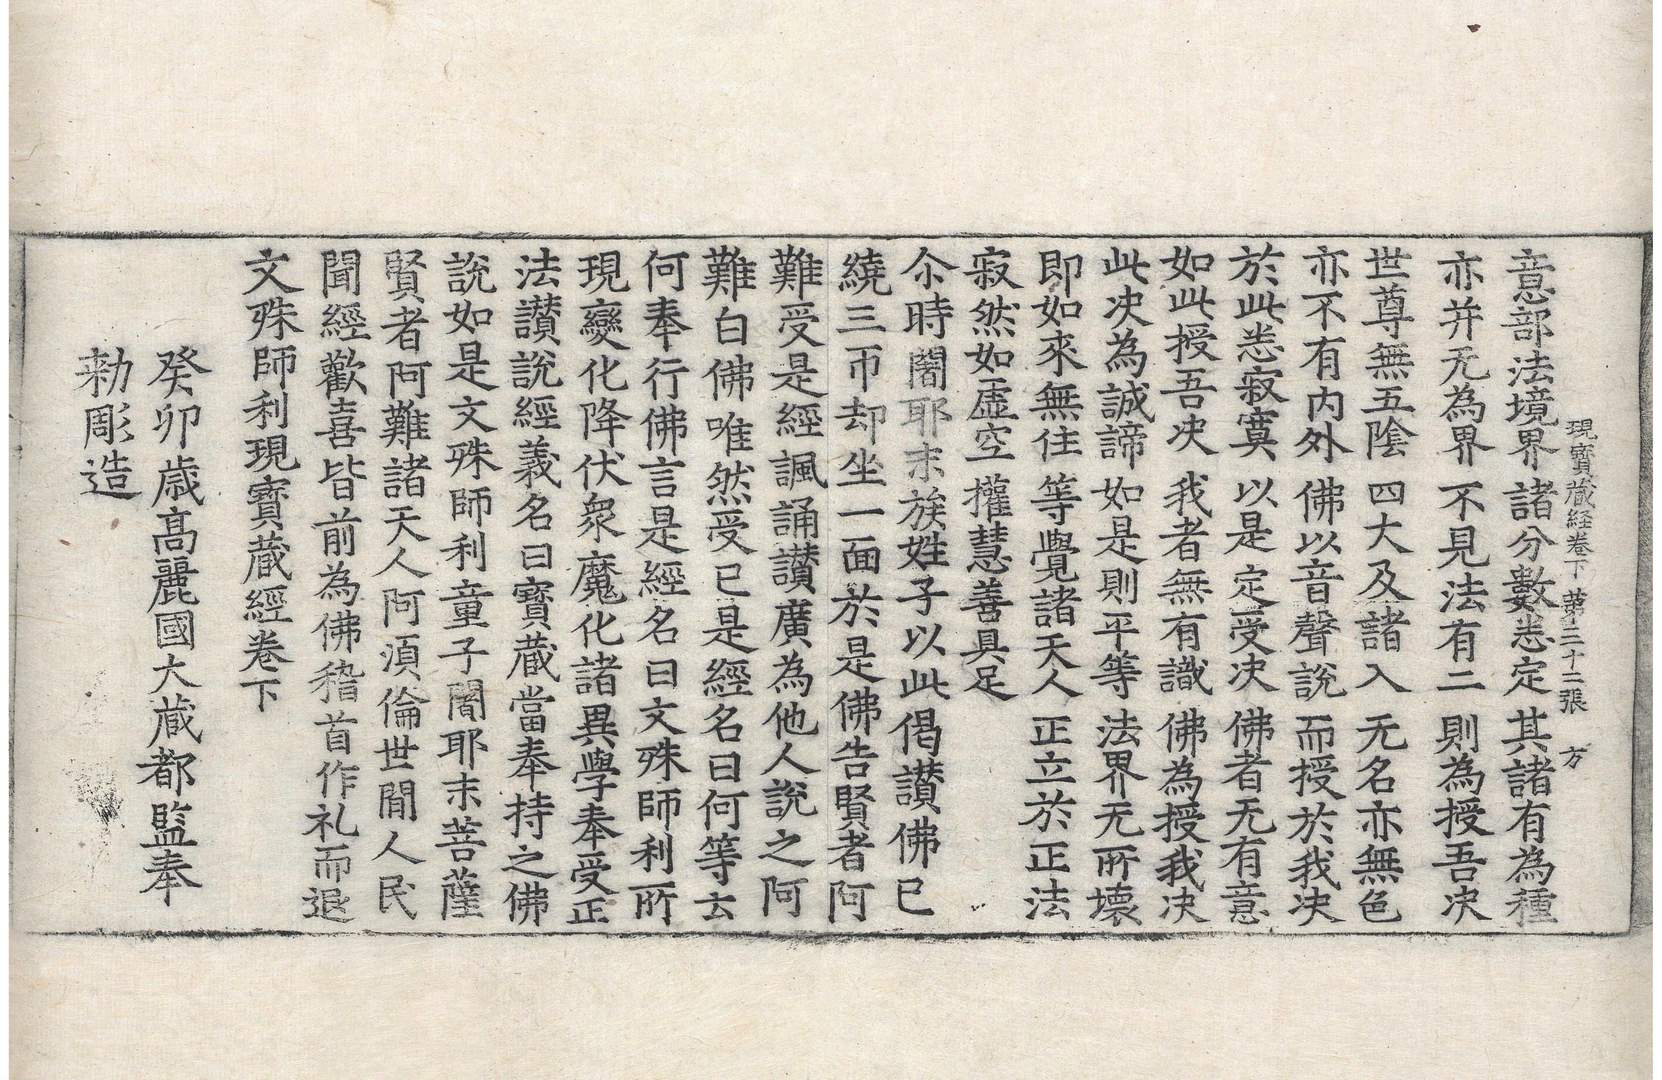 現寶蔵経卷下 苐三十二張 方
意部法境界 諸分數悉定 其諸有為種
亦并无為界 不見法有二 則為授吾决
世尊無五陰 四大及諸入 无名亦無色
亦不有内外 佛以音聲說 而授於我决
於此悉寂寞 以是定受决 佛者无有意
如此授吾决 我者無有識 佛為授我决
此决為誠諦 如是則平等 法界无所壞
即如來無住 等覺諸天人 正立於正法
寂然如虛空 權慧善具足
尒時闍耶末族姓子以此偈讃佛已
繞三帀却坐一面於是佛告賢者阿
難受是經諷誦讃廣為他人說之阿
難白佛唯然受已是經名曰何等云
何奉行佛言是經名曰文殊師利所
現變化降伏衆魔化諸異學奉受正
法讃說經義名曰寶蔵當奉持之佛
說如是文殊師利童子闍耶末菩薩
賢者阿難諸天人阿湏倫世間人民
聞經歡喜皆前為佛稽首作礼而退
文殊師利現寶蔵經卷下
癸卯歳髙麗國大蔵都監奉
勑彫造